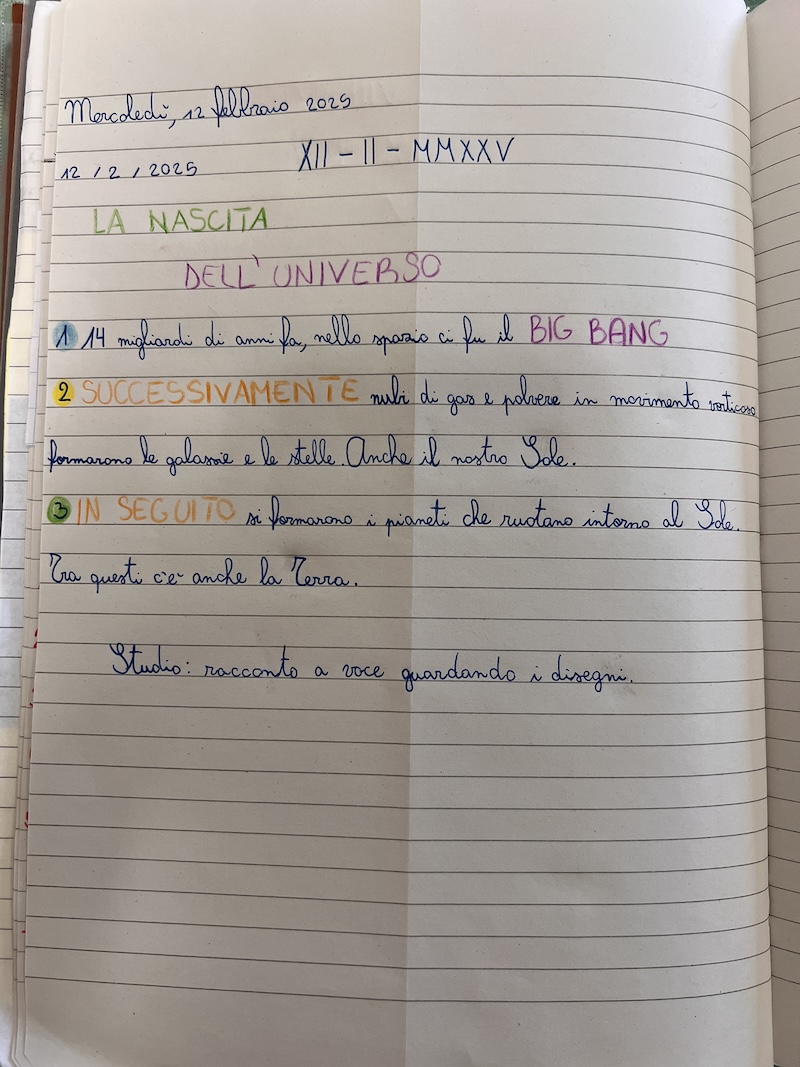 Mercoledì, 12 febbraio 2025
12 / 2 / 2025 XII - II - MMXXV
LA NASCITA
DELL'UNIVERSO
1 14 migliardi di anni fa, nello spazio ci fu il BIG BANG
2 SUCCESSIVAMENTE nubi di gas e polvere in movimento vorticoso
formarono le galassie e le stelle. Anche il nostro Sole.
3 IN SEGUITO si formarono i pianeti che ruotano intorno al Sole.
Tra questi c'è anche la Terra.
Studio: racconto a voce guardando i disegni.